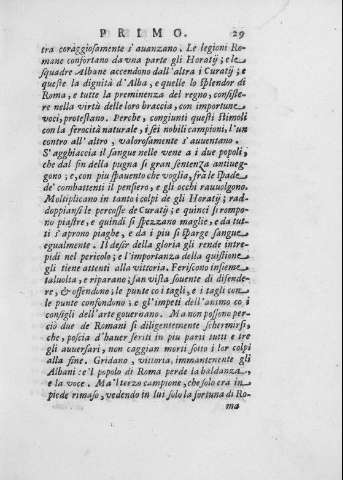 PRIMO. 29
tra coraggiosamente s'auanzano. Le legioni Ro-
mane confortano da vna parte gli Horatij; e le
squadre Albane accendono dall'altra i Curatij; e
queste la dignità d'Alba, e quelle lo splendor di
Roma, e tutte la preminenza del regno, consiste-
re nella virtù delle loro braccia, con importune
voci, protestano. Perche, congiunti questi stimoli
con la ferocità naturale, i sei nobili campioni, l'un
contro all'altro, valorosamente s'auuentano.
S'agghiaccia il sangue nelle vene a i due popoli,
che dal fin della pugna sì gran sentenza antiueg-
gono; e, con più spauento che voglia, frà le spade
de' combattenti il pensiero, e gli occhi rauuolgono.
Moltiplicano in tanto i colpi de gli Horatij; rad-
doppiansi le percosse de Curatij; e quinci si rompo-
no piastre, e quindi si spezzano maglie, e da tut-
ti s'aprono piaghe, e da i più si sparge sangue
egualmente. Il desir della gloria gli rende intre-
pidi nel pericolo; e l'importanza della quistione
gli tiene attenti alla vittoria. Feriscono insieme
taluolta, e riparano; fan vista souente di difende-
re, & offendono; le punte co i tagli, e i tagli con
le punte confondono; e gl'impeti dell'animo co i
consigli dell'arte gouernano. Ma non possono per-
ciò due de Romani sì diligentemente schermirsi,
che, poscia d'hauer feriti in più parti tutti e tre
gli auuersari, non caggian morti sotto i lor colpi
alla fine. Gridano, vittoria, immantenente gli
Albani: e'l popolo di Roma perde la baldanza,
e la voce. Ma'l terzo campione, che solo era in
piede rimaso, vedendo in lui solo la fortuna di Ro-
ma